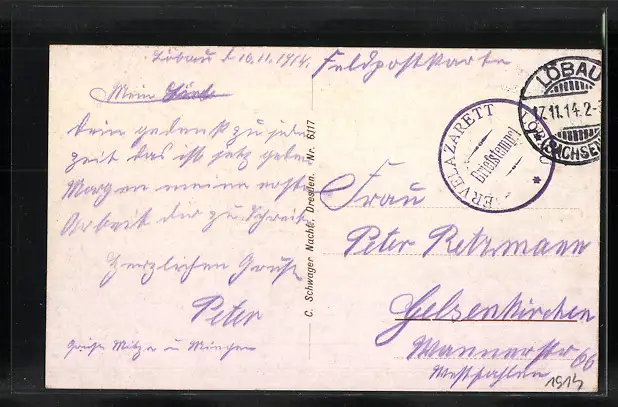 Löbau d 16.11.1914.
Feldpostkarte
Mein
Dein gedenkt zu jeder
Zeit das ist jetz jeden
Morgen meine erste
Arbeit dir zu Schreib
Herzlichen Gruß
Peter
Grüße
C. Schwager Nachf., Dresden. Nr. 6117
RESERVELAZARETT LÖBAU
Briefstempel
LÖBAU
17.11.14.2-3
(SACHSEN)
Frau
Peter Retzmann
Gelsenkirchen
Wannerstr 66
Westfahlen
1914